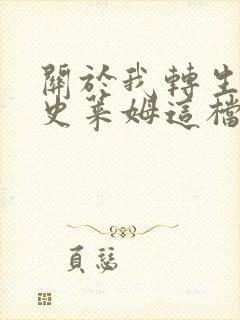 關於我轉生
史萊姆這檔